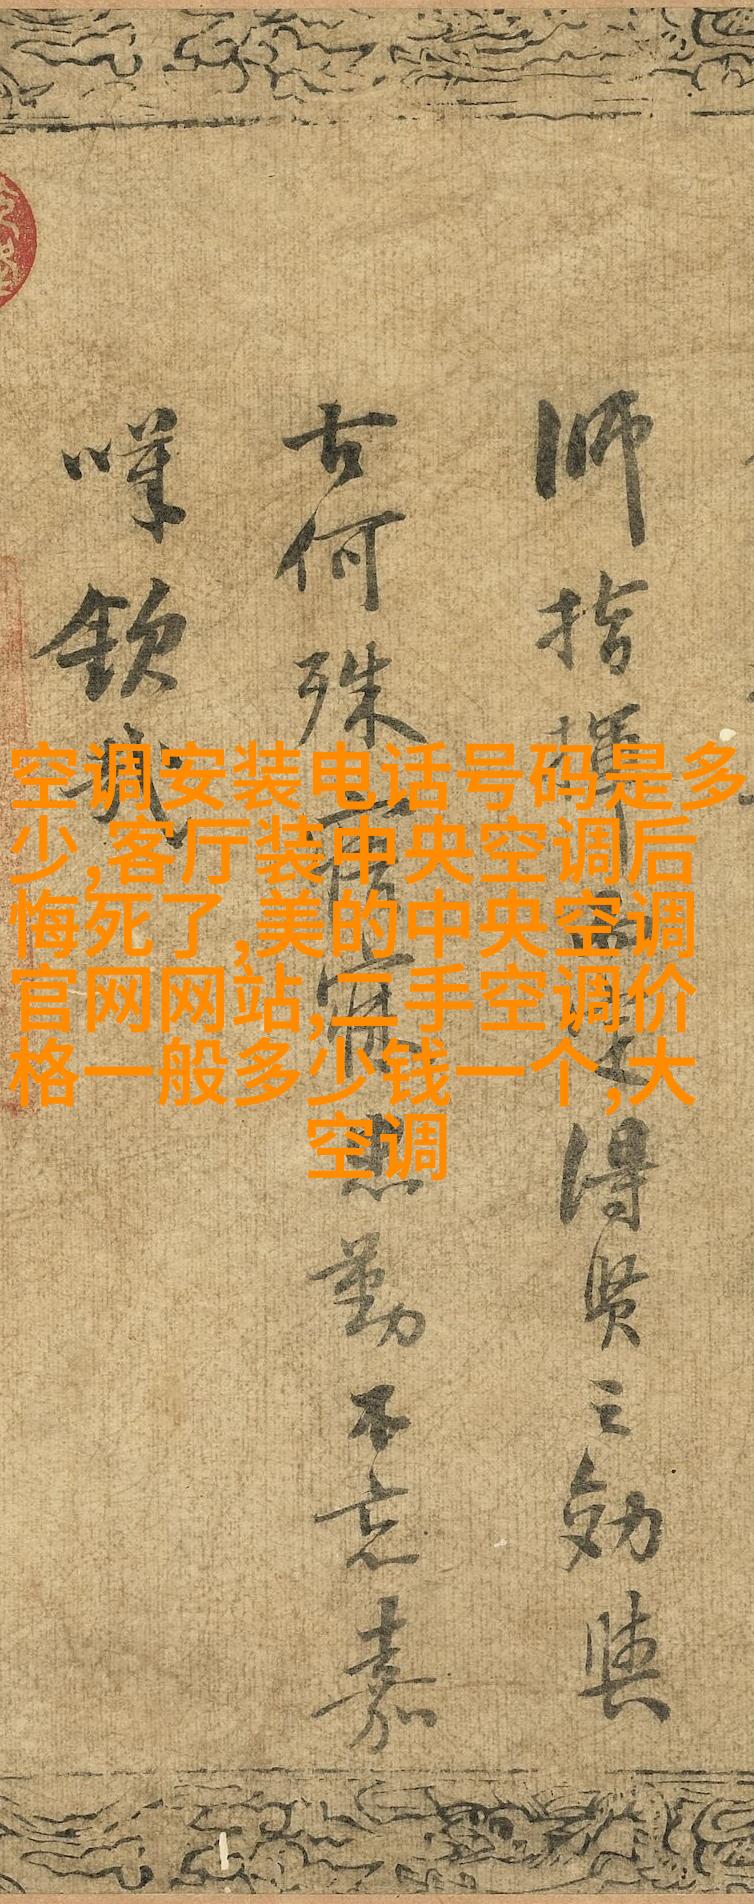 师指挥得贤之効与
古何殊寤寐忠勤不忘嘉
叹钦哉
空调安装电话号码是多
少,客厅装中央空调后
悔死了,美的中央空调
官网网站,二手空调价
格一般多少钱一个,大
空调